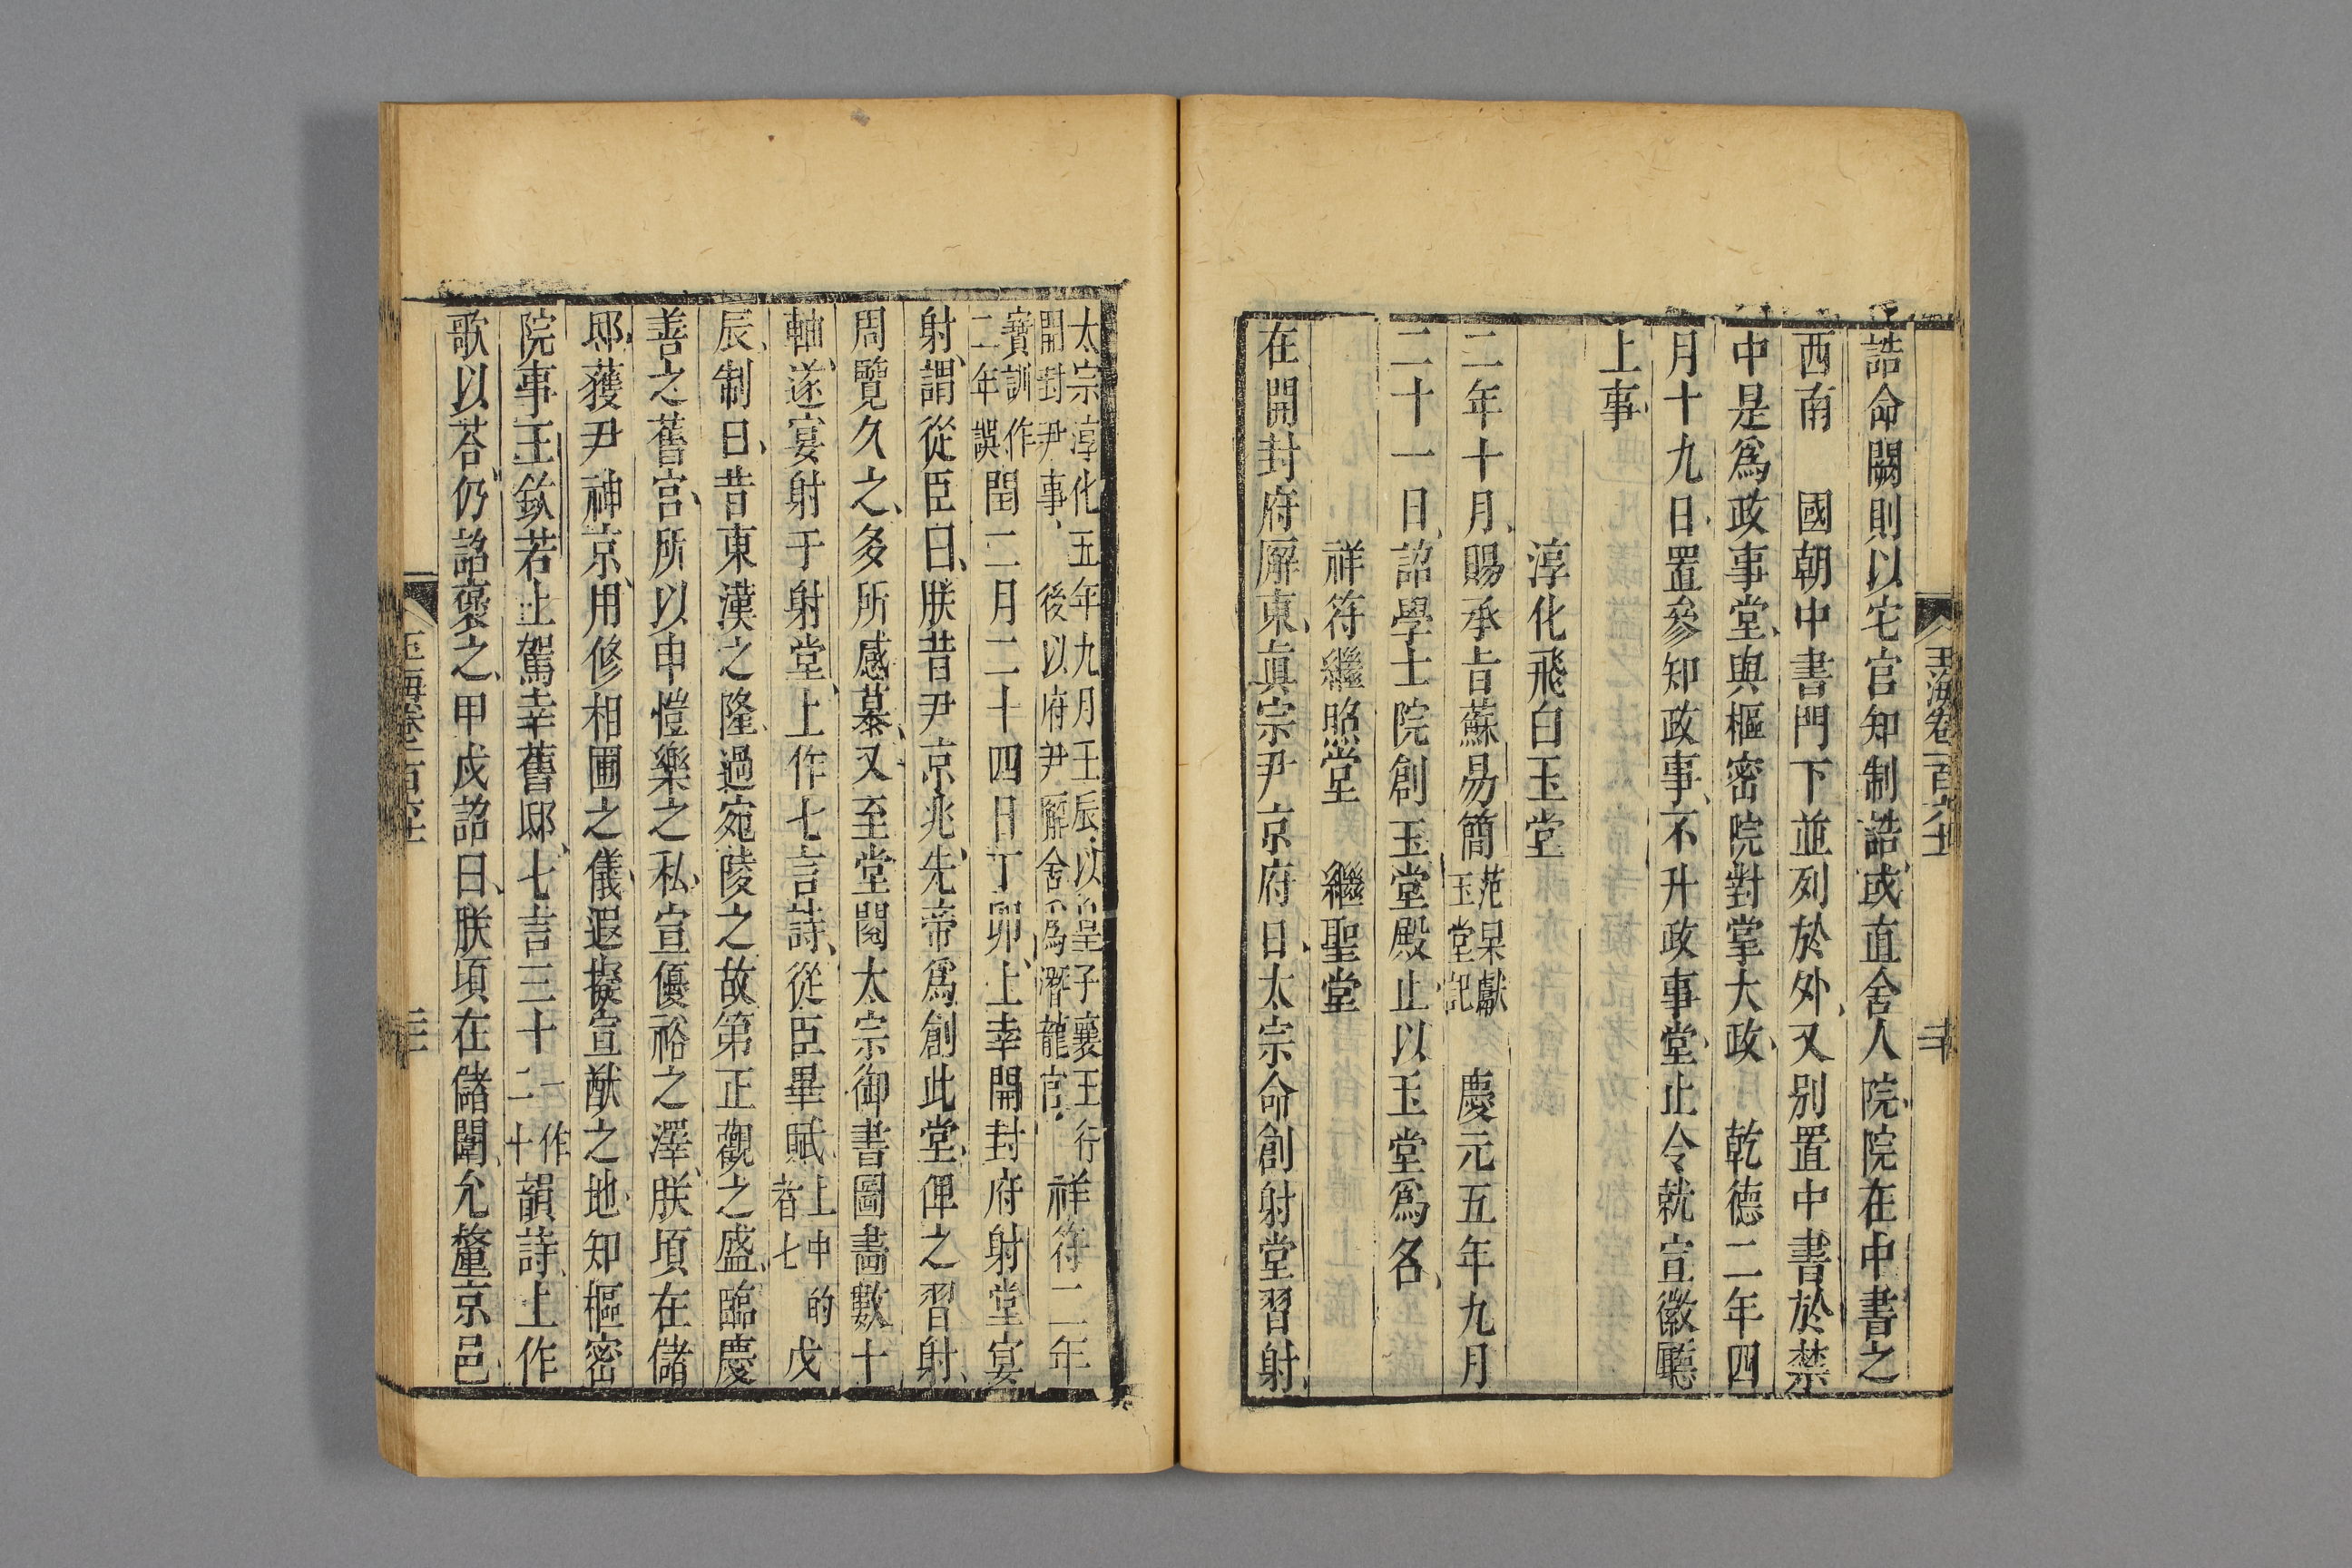 誥命闕則以宅官知制誥或直舍人院院在中書之
西南　國朝中書門下並列於外又別置中書於禁
中是爲政事堂與樞密院對掌大政　乾德二年四
月十九日置參知政事不升政事堂止令就宣徽廳
上事
淳化飛白玉堂
二年十月賜承旨蘇易簡范杲獻玉堂記　慶元五年九月
二十一日詔學士院創玉堂殿止以玉堂爲名
祥符繼照堂　繼聖堂
在開封府廨東眞宗尹京府日太宗命創射堂習射
太宗淳化五年九月壬辰以皇子襄王行開封尹事後以府尹廨舍爲潛龍宮　祥符二年
寶訓作二年誤閏二月二十四日丁卯上幸開封府射堂宴
射謂從臣曰朕昔尹京兆先帝爲創此堂俾之習射
周覽久之多所感慕又至堂閱太宗御書圖畫數十
軸遂宴射于射堂上作七言詩從臣畢賦上中的者七　戊
辰制曰昔東漢之隆過宛陵之故第正觀之盛臨慶
善之舊宮所以申愷樂之私宣優裕之澤朕頃在儲
邸獲尹神京用修相圃之儀遐擬宣猷之地知樞密
院事王欽若上駕幸舊邸七言三十二一作二十韻詩上作
歌以荅仍詔褒之甲戌詔曰朕頃在儲闈允釐京邑